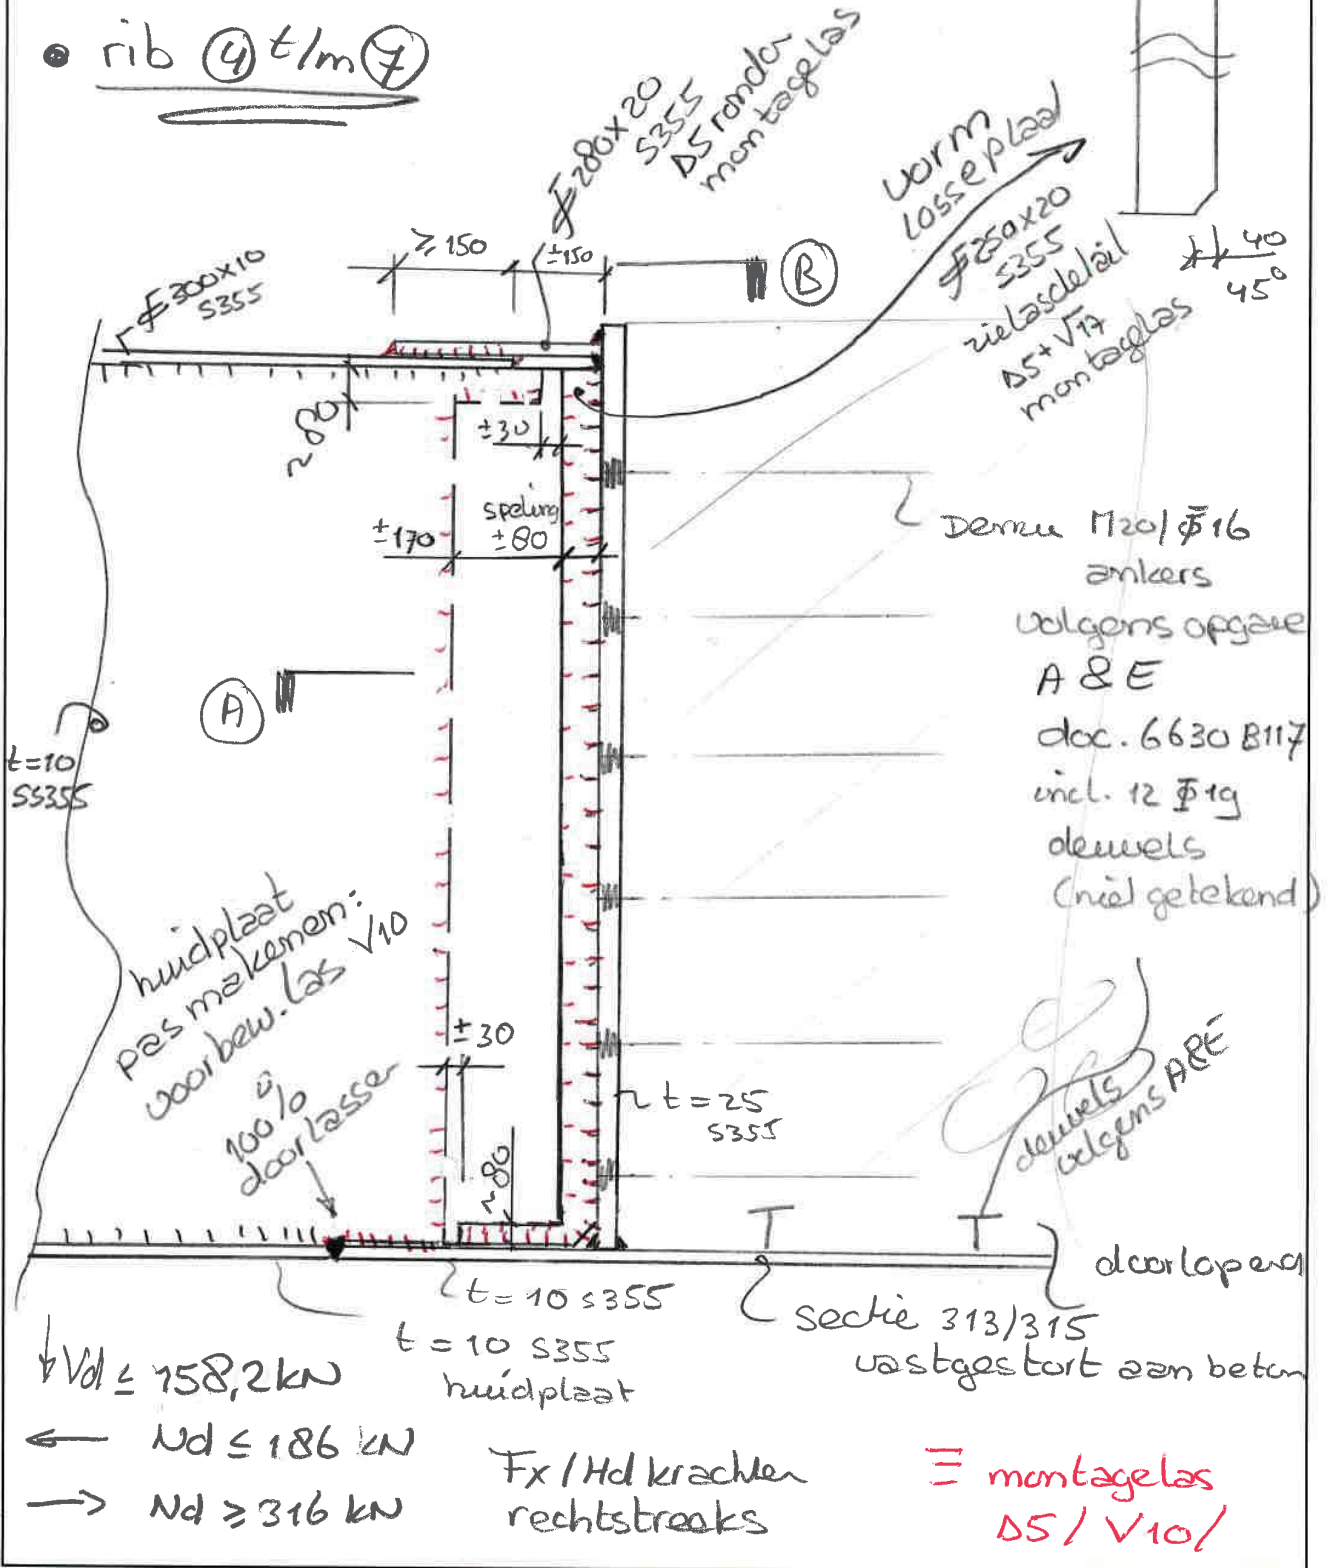 • rib ④ t/m ⑦
280x20
S355
Δ5 rondom
montagelas
vorm
losse plaat
250x20
S355
zie lasdetail
Δ5+V17
montagelas
40
45°
≥150
±150
B
300x10
S355
~80
±30
speling
±170
±80
Demu M20/Φ16
ankers
volgens opgave
A & E
doc. 6630 B117
incl. 12 Φ19
deuvels
(niet getekend)
A
t=10
SS355
huidplaat
pas maken en:
voorbew. las V10
100%
doorlassen
±30
~80
t=25
S355
deuvels
volgens A&E
doorlopend
t=10 S355
t=10 S355
huidplaat
sectie 313/315
vastgestort aan beton
↓Vd ≤ 158,2 kN
← Nd ≤ 186 kN
→ Nd ≥ 316 kN
Fx/Hd krachten
rechtstreeks
montagelas
Δ5/ V10/